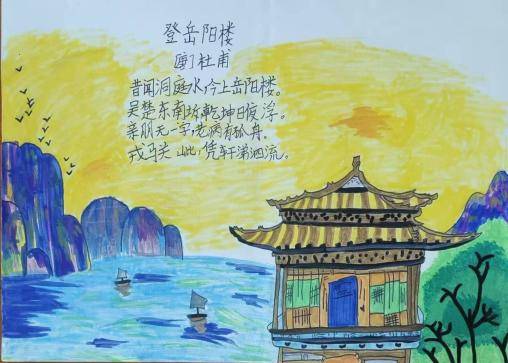 登岳阳楼
[唐]杜甫
昔闻洞庭水,今上岳阳楼。
吴楚东南坼,乾坤日夜浮。
亲朋无一字,老病有孤舟。
戎马关山北,凭轩涕泗流。